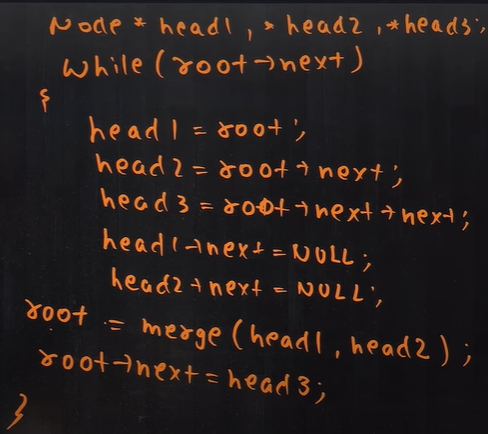 Node * head1, * head2, *head3;
while(root→next)
{
head1 = root;
head2 = root→next;
head3 = root→next→next;
head1→next = NULL;
head2→next = NULL;
root = merge(head1, head2);
root→next = head3;
}